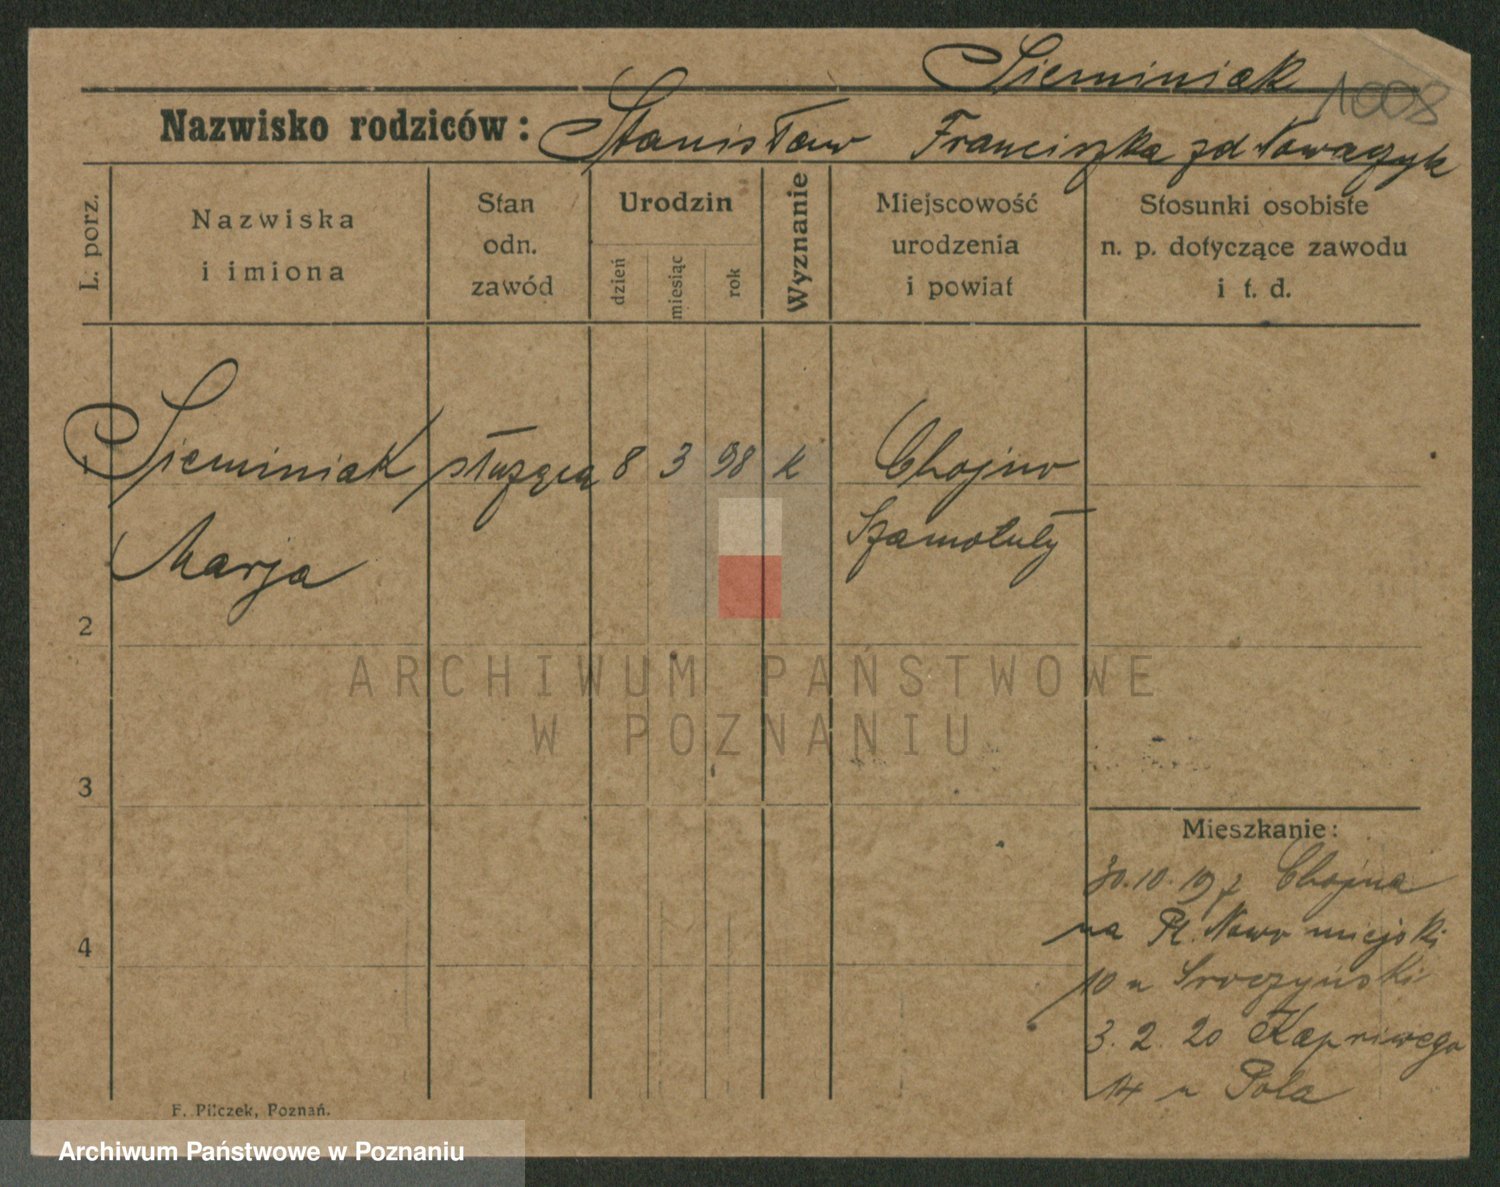 Sieminiak 1008
Nazwisko rodziców: Stanisław Franciszka zd Nowaczyk
L. porz.
Nazwiska
i imiona
Stan
odn.
zawód
Urodzin
dzień
miesiąc
rok
Wyznanie
Miejscowość
urodzenia
i powiat
Stosunki osobiste
n. p. dotyczące zawodu
i t. d.
1 Sieminiak służąca 8 3 98 k Chojno
Marja Szamotuły
2
3
4
ARCHIWUM PAŃSTWOWE
W POZNANIU
Mieszkanie:
30.10.19 z Chojna
na Pl. Nowo miejski
10 u Sroczyński
3. 2. 20 Kapriwego
14 u Pola
F. Pilczek, Poznań.
Archiwum Państwowe w Poznaniu